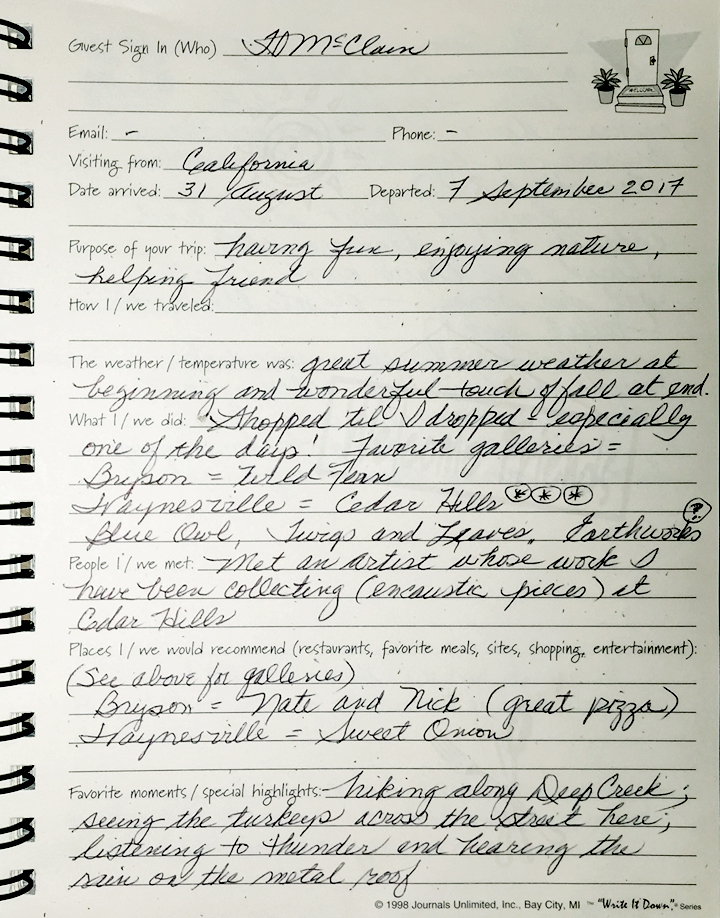 Guest Sign In (Who) JD McClain
WELCOME
Email: - Phone: -
Visiting from: California
Date arrived: 31 August Departed: 7 September 2017
Purpose of your trip: having fun, enjoying nature,
helping friend
How I / we traveled:
The weather / temperature was: great summer weather at
beginning and wonderful touch of fall at end.
What I / we did: Shopped 'til I dropped - especially
one of the days! Favorite galleries =
Bryson = Wild Fern
Waynesville = Cedar Hills * * *
Blue Owl, Twigs and Leaves, Earthworks ?
People I / we met: Met an artist whose work I
have been collecting (encaustic pieces) at
Cedar Hills
Places I / we would recommend (restaurants, favorite meals, sites, shopping, entertainment):
(See above for galleries)
Bryson = Nate and Nick (great pizza)
Waynesville = Sweet Onion
Favorite moments / special highlights: hiking along Deep Creek;
seeing the turkeys across the street here;
listening to thunder and hearing the
rain on the metal roof
© 1998 Journals Unlimited, Inc., Bay City, MI ™ "Write It Down"® Series